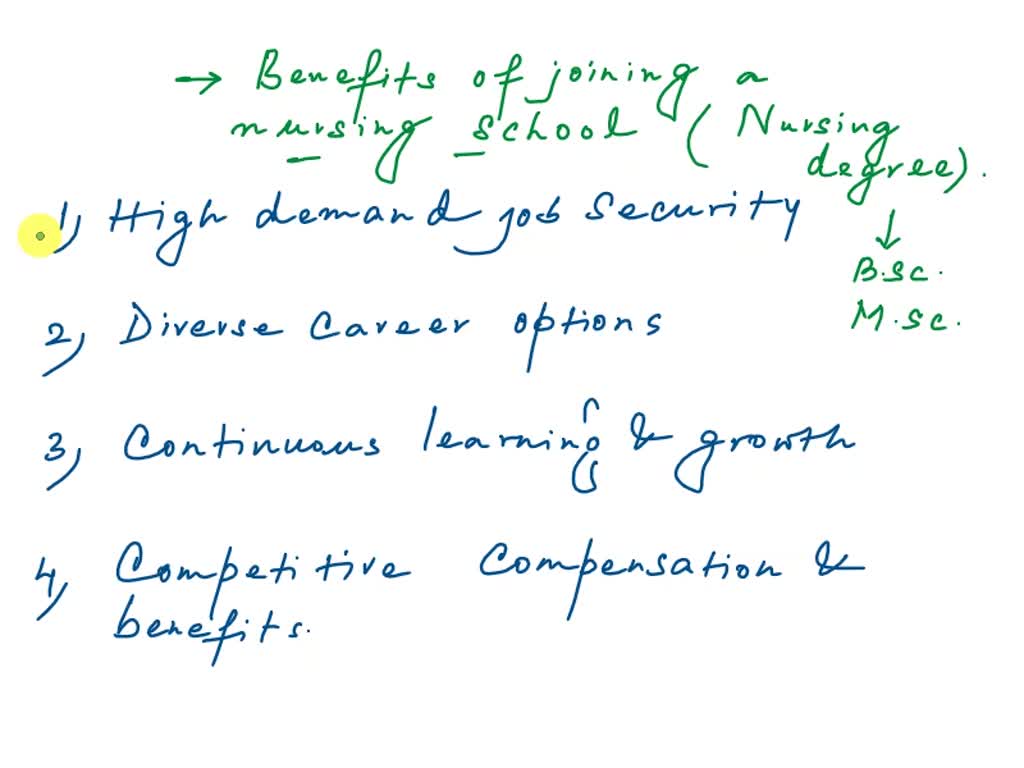 → Benefits of joining a
nursing school (Nursing
degree).
↓
B.sc.
M.sc.
1, High demand job security
2, Diverse career options
3, Continuous learning & growth
4, Competitive compensation &
benefits.